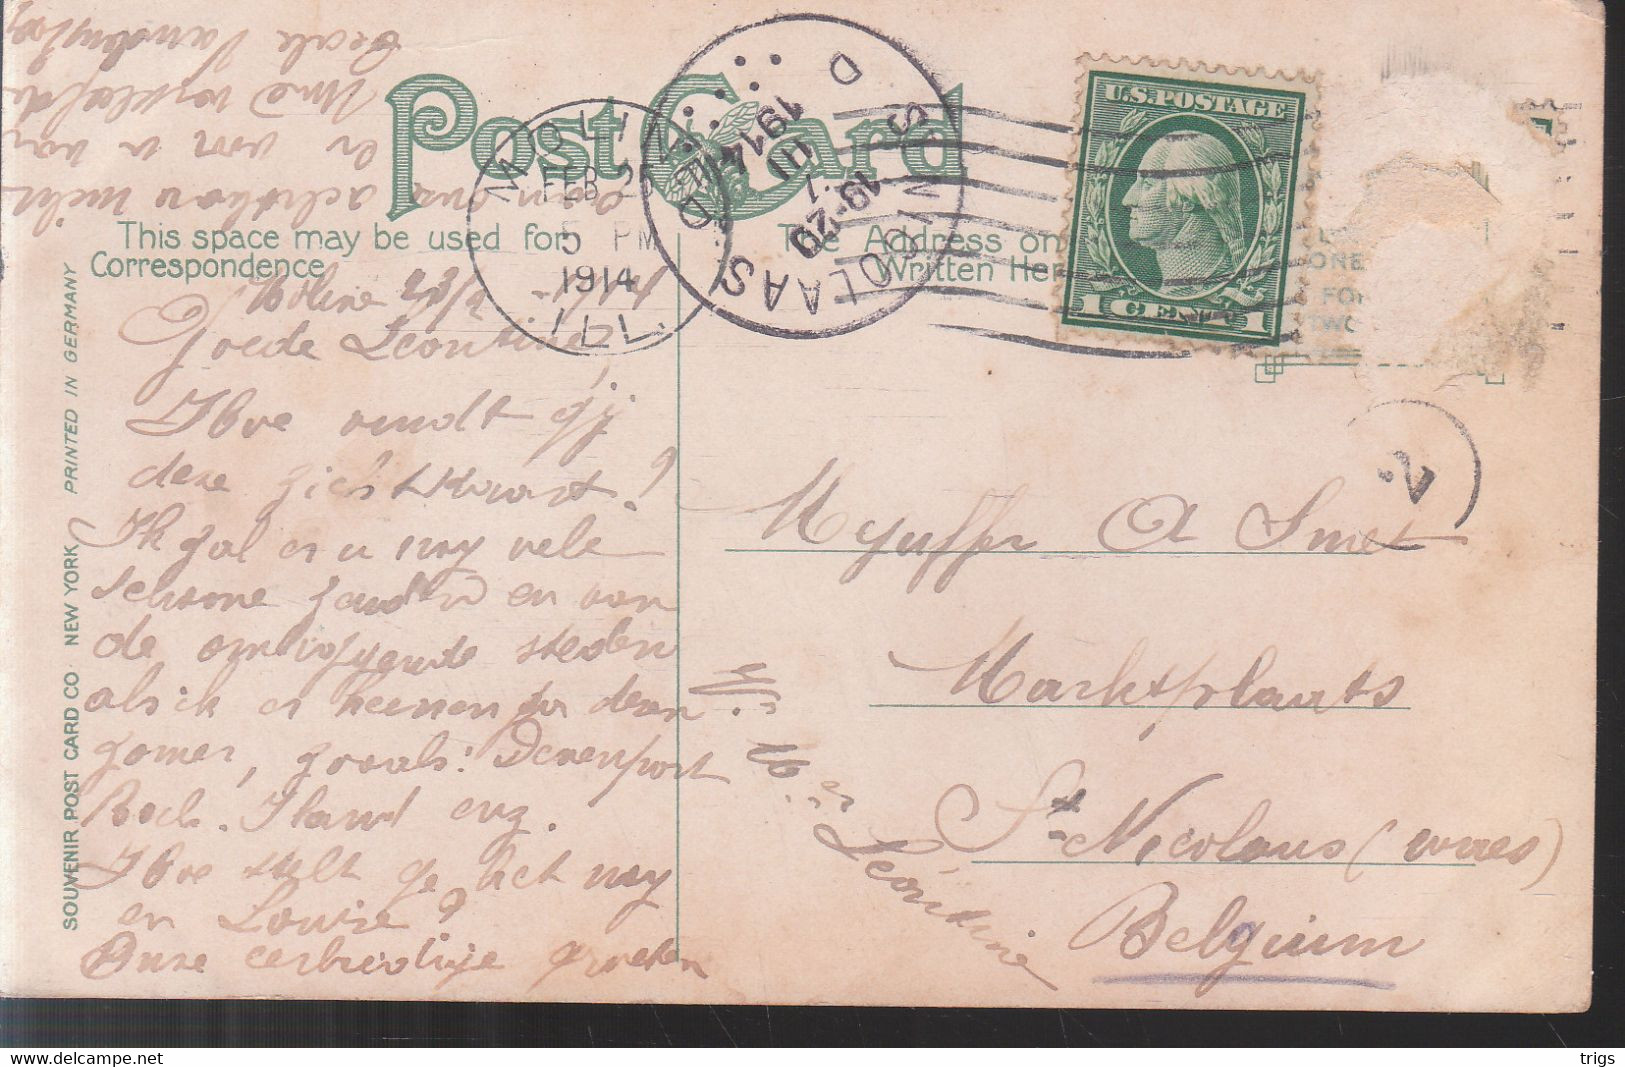 Post Card
This space may be used for
Correspondence
The Address on
Written Here
U.S. POSTAGE
1 CENT 1
MOLI ILL
FEB 2
5 PM
1914
S. NICOLAAS
19-20
1 III
1914
D
ONE
FOR
TWO
2
SOUVENIR POST CARD CO. NEW YORK PRINTED IN GERMANY
Moline 23/2 - 1914
Goede Leontine,
Hoe vindt gij
deze zichtkaart!
Ik zal er u nog vele
schoone zenden en van
de omliggende steden
als ik er heenen ga dezen
zomer, zooals: Davenport
Rock. Island enz.
Hoe stelt ge het nog
en Louise?
Onze eerbiedige groeten
van ons
er voor u van
Uwe verkleefde
Mejuffr A Smet
Marktplaats
St. Nicolaus (waes)
Belgium
Leontine
trigs